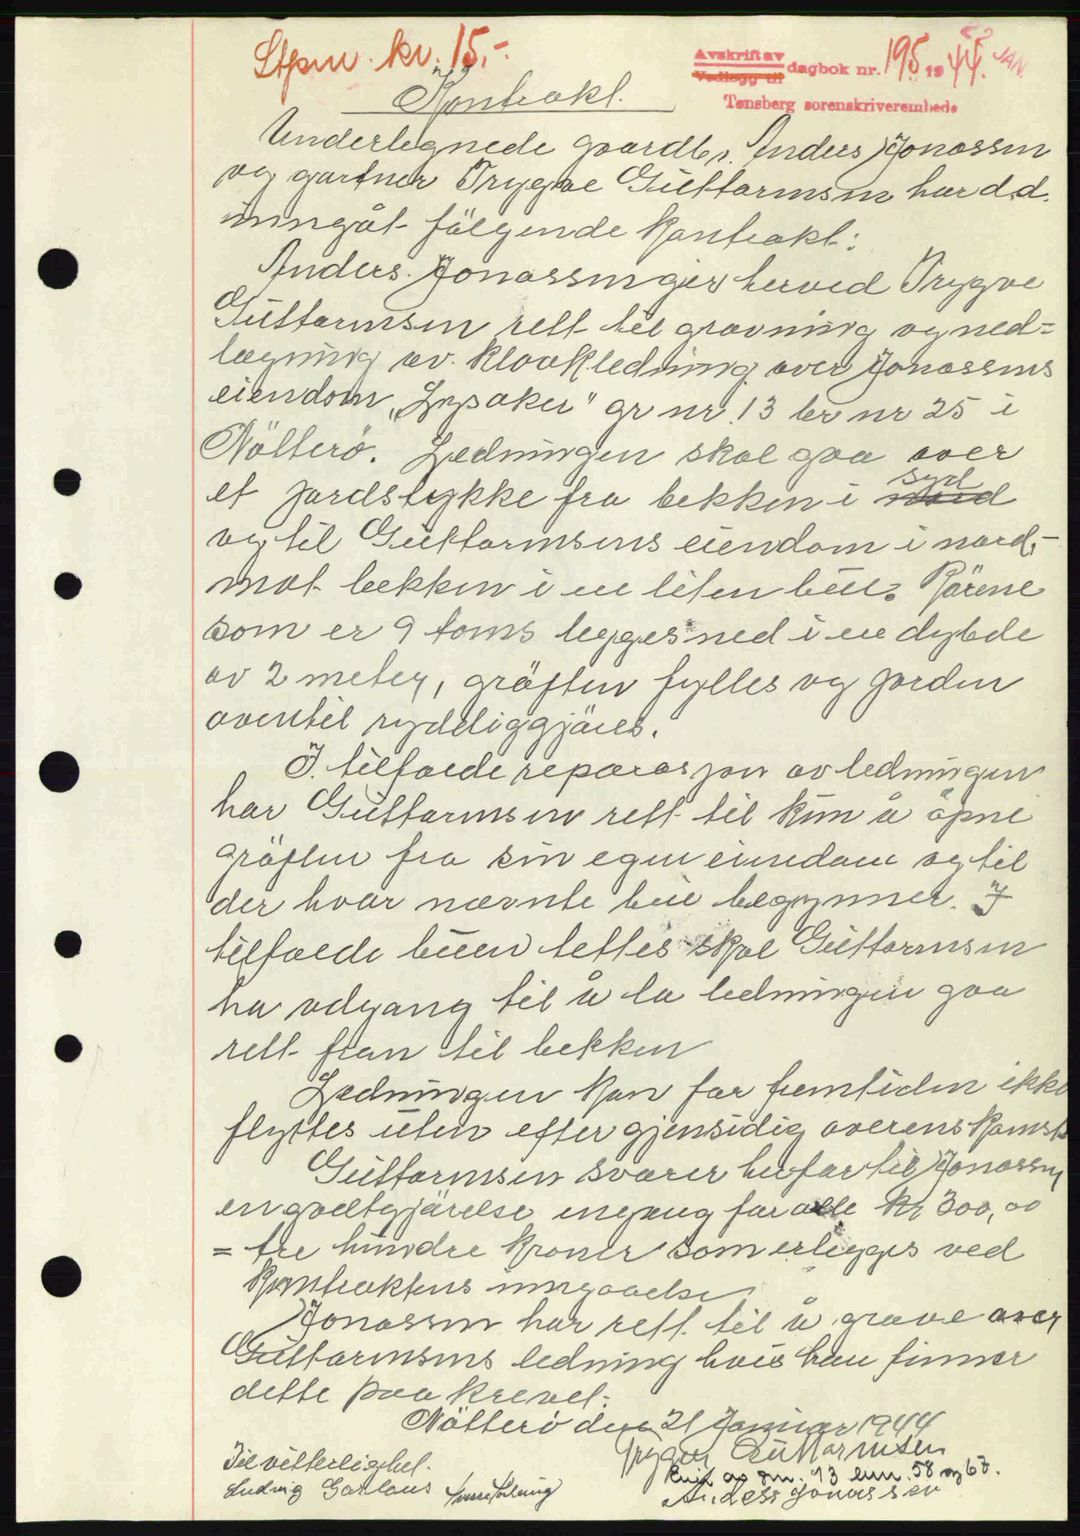 Stpm. kr. 15,-
Avskrift av
Vedlegg til dagbok nr. 195 1944. 22 JAN.
Tønsberg sorenskriverembede
Kontrakt.
Undertegnede gaardbr. Anders Jonassen
og gartner Trygve Güttormsen har d.d.
inngåt fölgende Kontrakt:
Anders Jonassen gir herved Trygve
Güttormsen rett til gravning og ned=
lægning av Kloakledning over Jonassens
eiendom "Lysaker" gr nr. 13 br nr 25 i
Nötterö. Ledningen skal gaa over
et jordstykke fra bekken i nord syd
og til Güttormsens eiendom i nord,-
mot bekken i en liten bue. Rörene
som er 9 toms legges ned i en dybde
av 2 meter, gröften fylles og jorden
oventil ryddiggjöres.
I tilfælde reparasjon av ledningen
har Güttormsen rett til kun å åpne
gröften fra sin egen eiendom og til
der hvor nævnte bue begynner. I
tilfælde buen tettes skal Güttormsen
ha adgang til å la ledningen gaa
rett fram til bekken
Ledningen kan for fremtiden ikke
flyttes uten efter gjensidig overenskomst
Güttormsen svarer herfor til Jonassen
en godtgjörelse engang for alle kr 300,00
= tre hundre kroner som erlegges ved
Kontraktens inngaaelse
Jonassen har rett til å grave over
Güttormsens ledning hvis han finner
dette paakrevet.
Nötterö den 21 Januar 1944
Trygve Güttormsen
Til vitterlighet.
Eier av gnr. 13 bnr. 58 og 67.
Ludvig Gallaus
Anders Jonassen